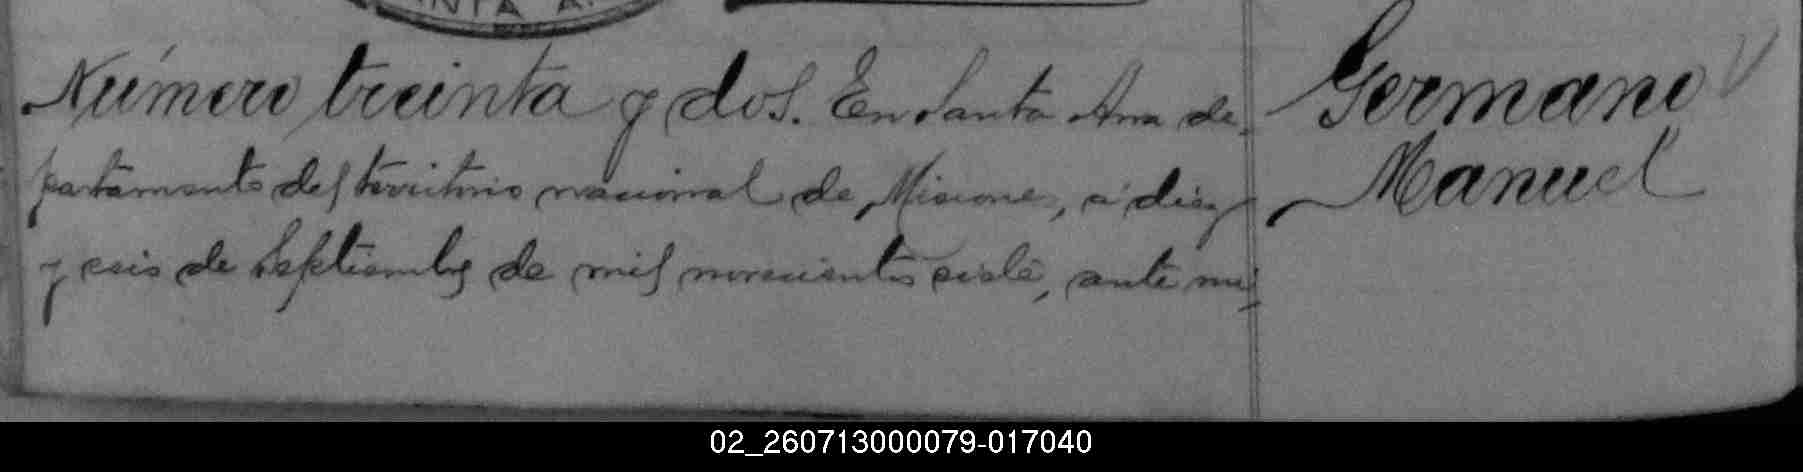 NTA A.
Número treinta y dos. En Santa Ana de-
partamento del territorio nacional de Misiones, á diez
y seis de Septiembre de mil novecientos siete, ante mi,
Germano
Manuel
02_260713000079-017040